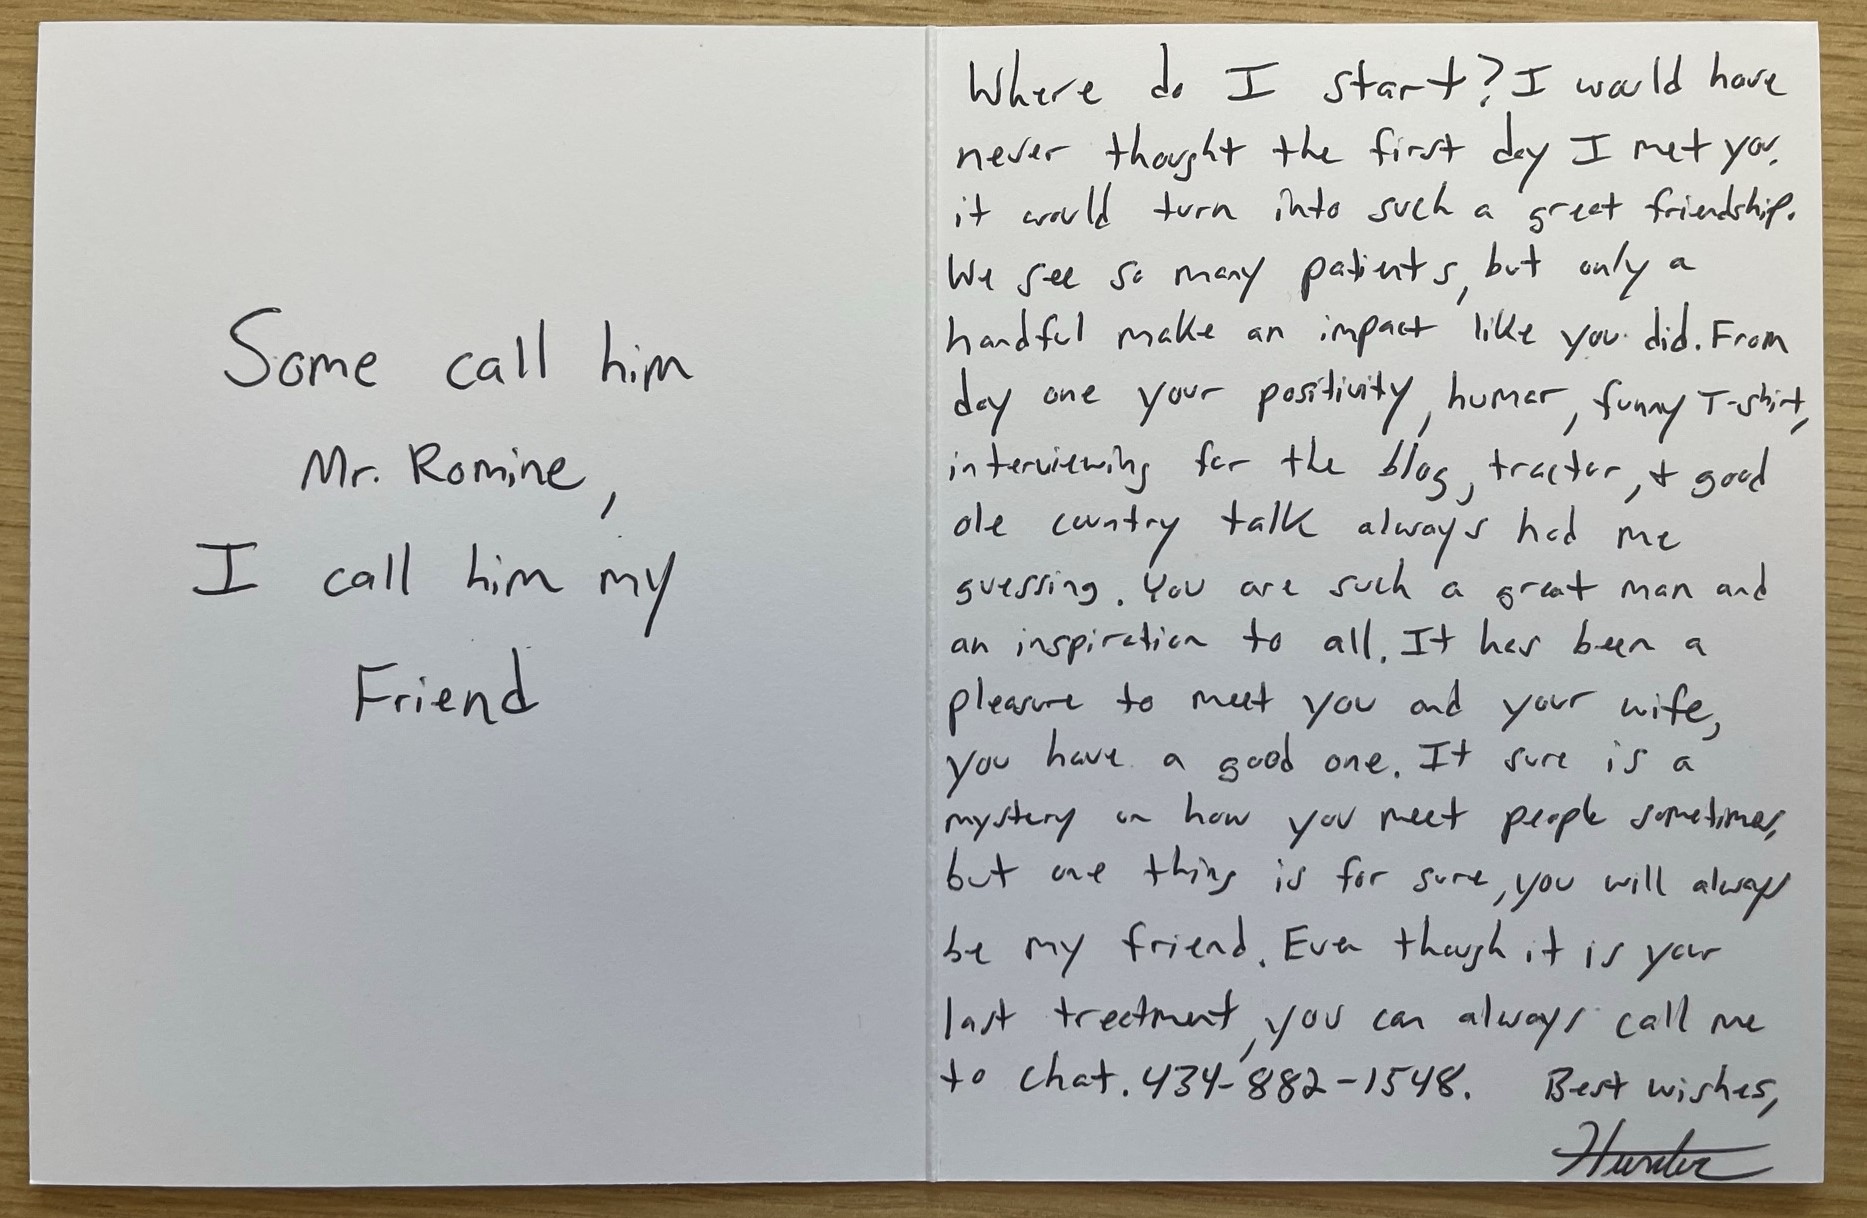 Some call him
Mr. Romine,
I call him my
Friend
Where do I start? I would have
never thought the first day I met you,
it would turn into such a great friendship.
We see so many patients, but only a
handful make an impact like you did. From
day one your positivity, humor, funny T-shirt,
interviewing for the blog, tractor, + good
ole country talk always had me
guessing. You are such a great man and
an inspiration to all. It has been a
pleasure to meet you and your wife,
you have a good one. It sure is a
mystery on how you meet people sometimes,
but one thing is for sure, you will always
be my friend. Even though it is your
last treatment, you can always call me
to chat. 434-882-1548. Best wishes,
Hunter